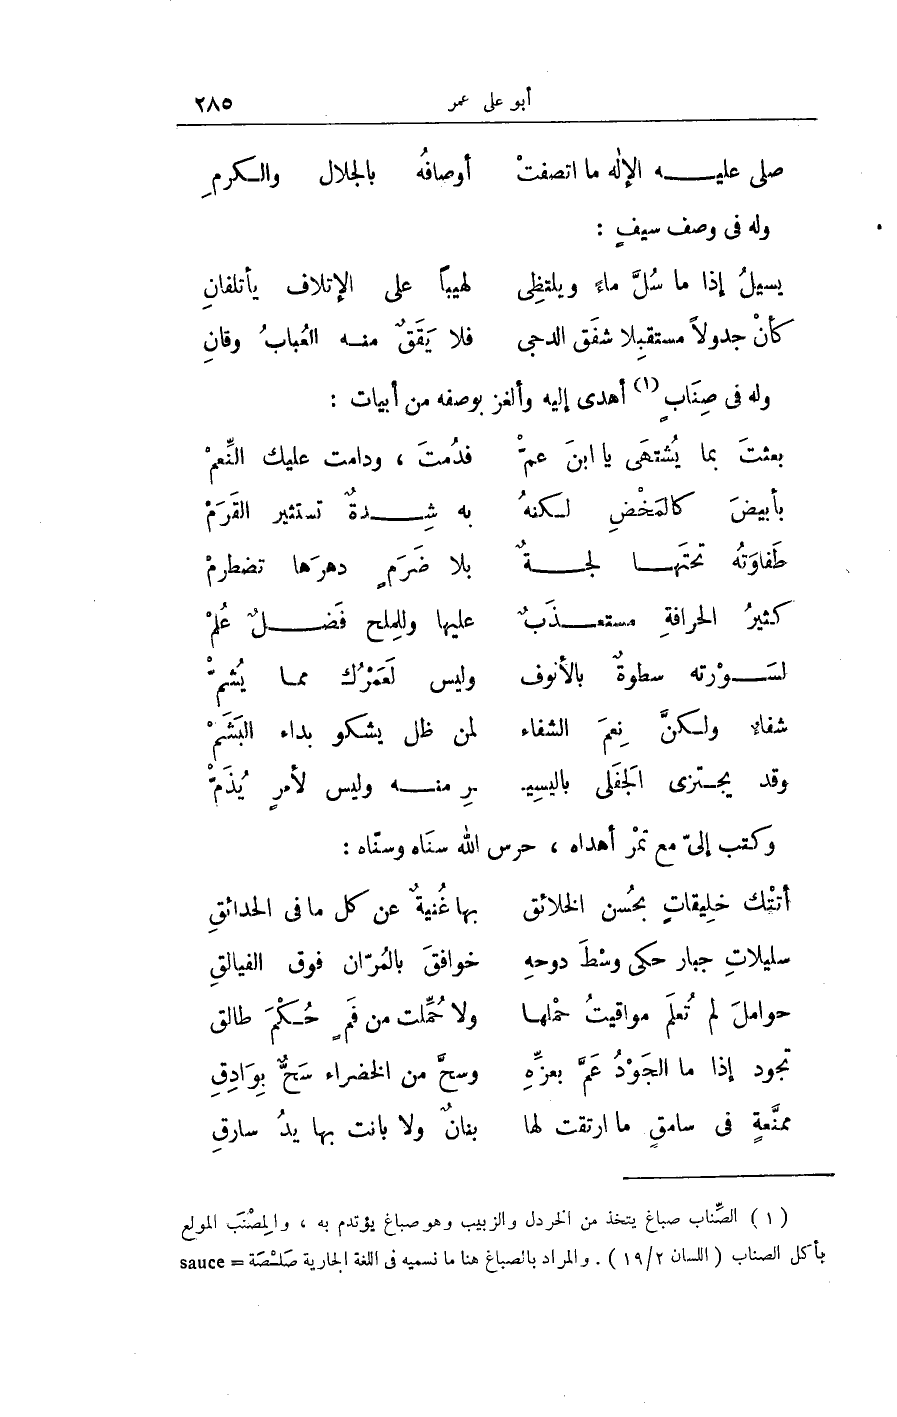 أبو على عمر ٢٨٥
صلى عليـــه الإلٰه ما اتصفتْ أوصافُه بالجلال والكرمِ
وله فى وصف سيفٍ :
يسيلُ إذا ما سُلَّ ماءً ويلتظِى لهيبًا على الإتلاف يأتلفانِ
كأنْ جدولاً مستقبِلا شفَق الدجى فلا يَقَقٌ منه العُبابُ وقانِ
وله فى صِنَابٍ (١) أهدى إليه وألغز بوصفه من أبيات :
بعثتَ بما يُشتهَى يا ابنَ عمّْ فدُمتَ ، ودامت عليك النِّعمْ
بأبيضَ كالمَخْضِ لكنهُ به شِــدةٌ تستثير القَرَمْ
طَفاوَتُه تحتَهـا لجـــةٌ بلا ضَرَمٍ دهرَها تضطرمْ
كثيرُ الحرافةِ مستعـذَبٌ عليها وللِملح فَضـــلٌ عُلمْ
لسَــوْرته سطوةٌ بالأنوف وليس لَعَمْرُك مما يُشمّْ
شفاء ولكنَّ نِعمَ الشفاء لمن ظل يشكو بداء البَشَمْ
وقد يجتزى الجَفَلى باليسيـ ـرِ منــه وليس لأمرٍ يُذَمّْ
وكتب إلىّ مع تمْر أهداه ، حرس الله سنَاه وسنّاه :
أتتْك خلِيقاتٍ بحُسن الخلائق بها غُنيةٌ عن كل ما فى الحدائقِ
سليلاتِ جبار حكى وسْطَ دوحهِ خوافقَ بالمُرّان فوق الفيالقِ
حواملَ لم تُعلَم مواقيتُ حمْلها ولا حُمِّلت من فَمٍ حُكْمَ طالق
تجود إذا ما الجَوْدُ عَمَّ بعزِّهِ وسحَّ من الخضراء سَحٌّ بِوَادِقِ
ممنَّعةٍ فى سامقٍ ما ارتقت لها بنانٌ ولا بانت بها يدُ سارقِ
( ١ ) الصِّناب صباغ يتخذ من الخردل والزبيب وهو صباغ يؤتدم به ، والمِصْنَب المولع
بأكل الصناب ( اللسان ١٩/٢ ) . والمراد بالصباغ هنا ما نسميه فى اللغة الجارية صَلْصَة = sauce